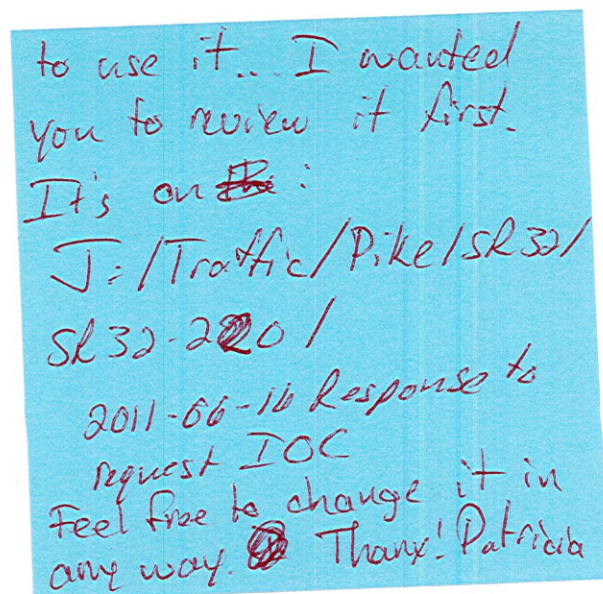 to use it... I wanted
you to review it first.
It's on :
J:/Traffic/Pike/SR32/
SR32-220/
2011-06-16 Response to
request IOC
Feel free to change it in
any way. Thanx! Patricia